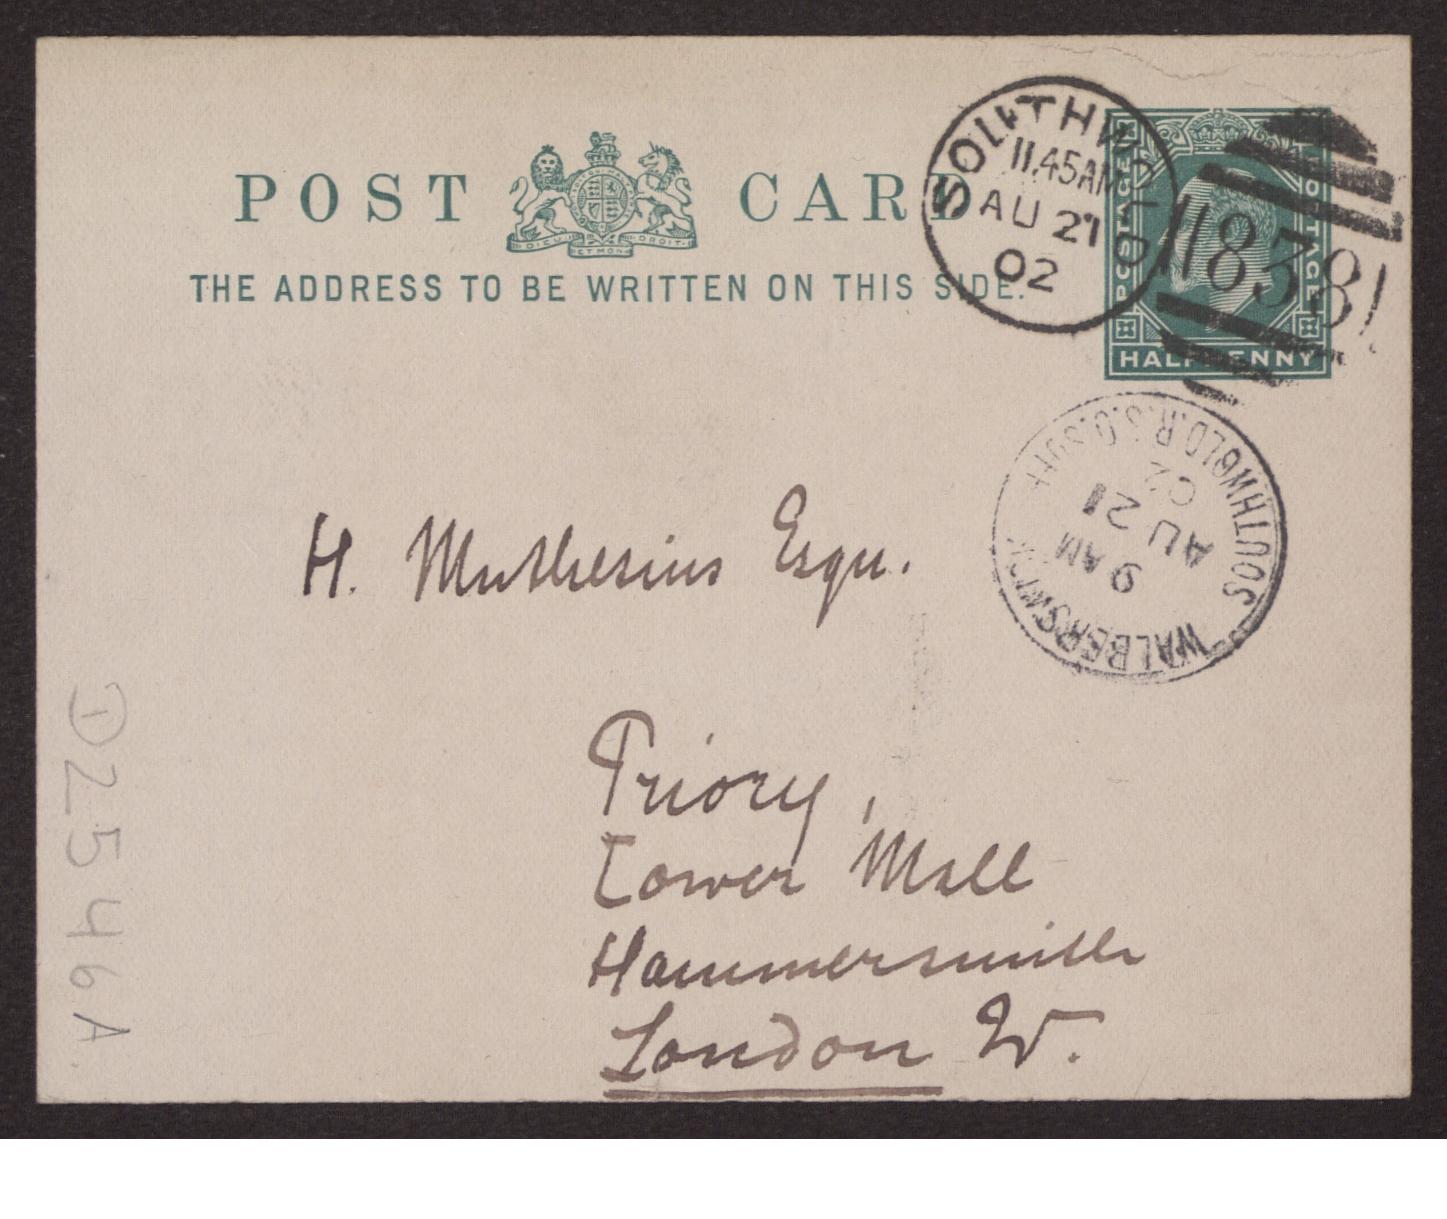 POST CARD
DIEU ET MON DROIT
THE ADDRESS TO BE WRITTEN ON THIS SIDE.
SOUTHWOLD
11.45AM
AU 21
02
838
POSTAGE
POSTAGE
HALFPENNY
WALBERSWICK
SOUTHWOLD.R.S.O.SUFF
9 AM
AU 21
02
H. Muthesius Esqu.
Priory,
Lower Mall
Hammersmith
London W.
① 2546A